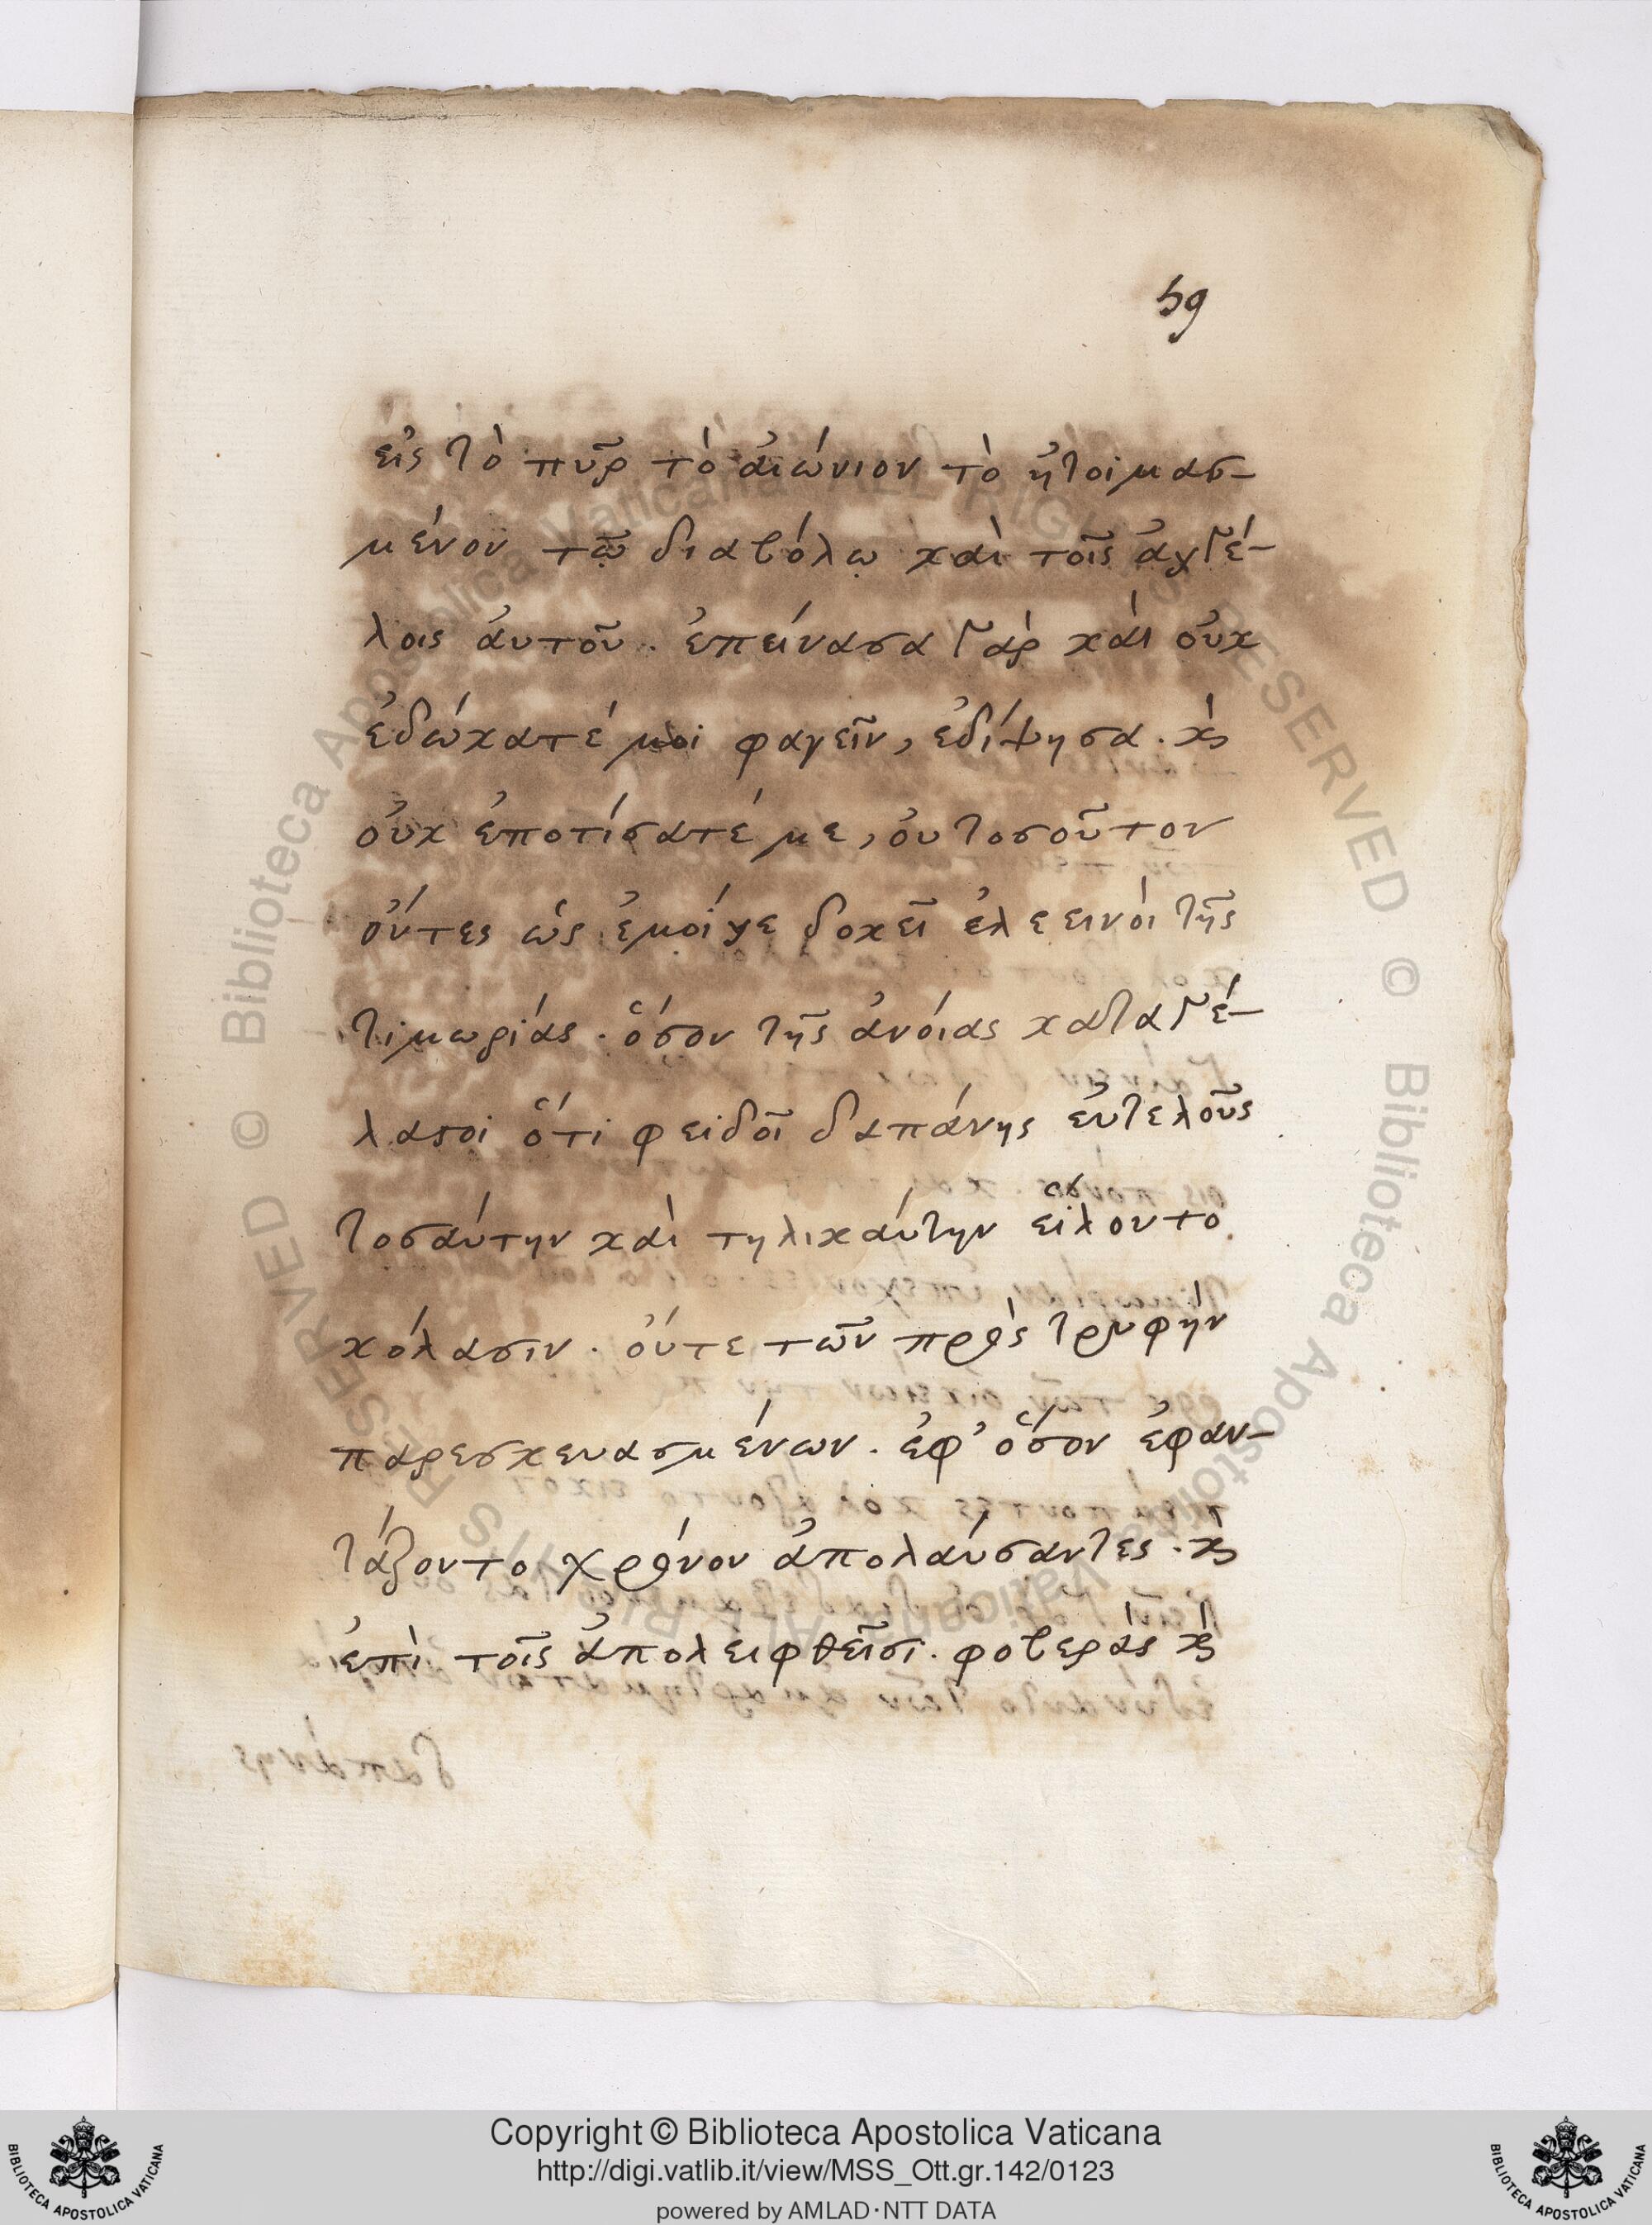 59
εἰς τὸ πῦρ τὸ ἀιώνιον τὸ ἡτοιμασ-
μένον τῶ διαβόλω καὶ τοῖς ἀγγέ-
λοις ἀυτοῦ. ἐπείνασα γὰρ καὶ οὐκ
ἐδώκατέ μοι φαγεῖν, ἐδίψησα. κὶ
οὐκ ἐποτίσατέ με, ὀυ τοσοῦτον
ὄντες ὡς ἐμοίγε δοκεῖ ἐλεεινοὶ τῆς
τιμωρίας. ὅσον τῆς ἀνόιας καταγέ-
λαστοι ὅτι φειδοῖ δαπάνης ἐυτελοῦς
τοσαύτην καὶ τηλικάυτην εἵλοντο
κόλασιν. ὄυτε τῶν πρὸς τρυφὴν
παρεσκευασμένων. ἐφ' ὅσον ἐφαν-
τάζοντο χρόνον ἀπολάυσαντες. κὶ
ἐπὶ τοῖς ἀπολειφθεῖσι. φοβερὰς κὶ
Copyright © Biblioteca Apostolica Vaticana
http://digi.vatlib.it/view/MSS_Ott.gr.142/0123
powered by AMLAD·NTT DATA
BIBLIOTECA APOSTOLICA VATICANA
BIBLIOTECA APOSTOLICA VATICANA